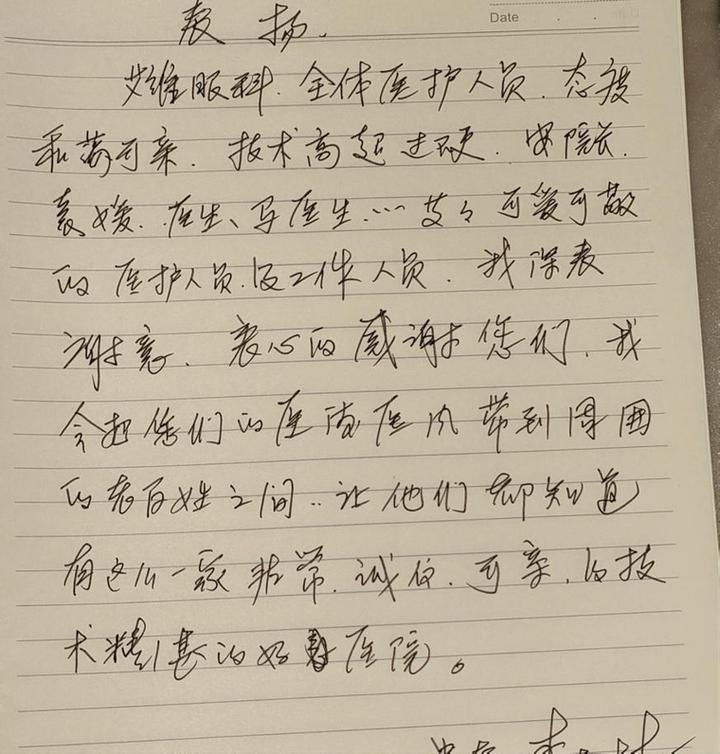 Date
表扬.
艾维眼科.全体医护人员.态度
和蔼可亲.技术高超过硬.安院长.
袁媛.医生、马医生…等々可爱可敬
的医护人员.及工作人员.我深表
谢意.衷心的感谢您们.我
会把您们的医德医风带到周围
的老百姓之间..让他们都知道
有这么一家非常.诚信.可亲.的技
术精湛的好医院。